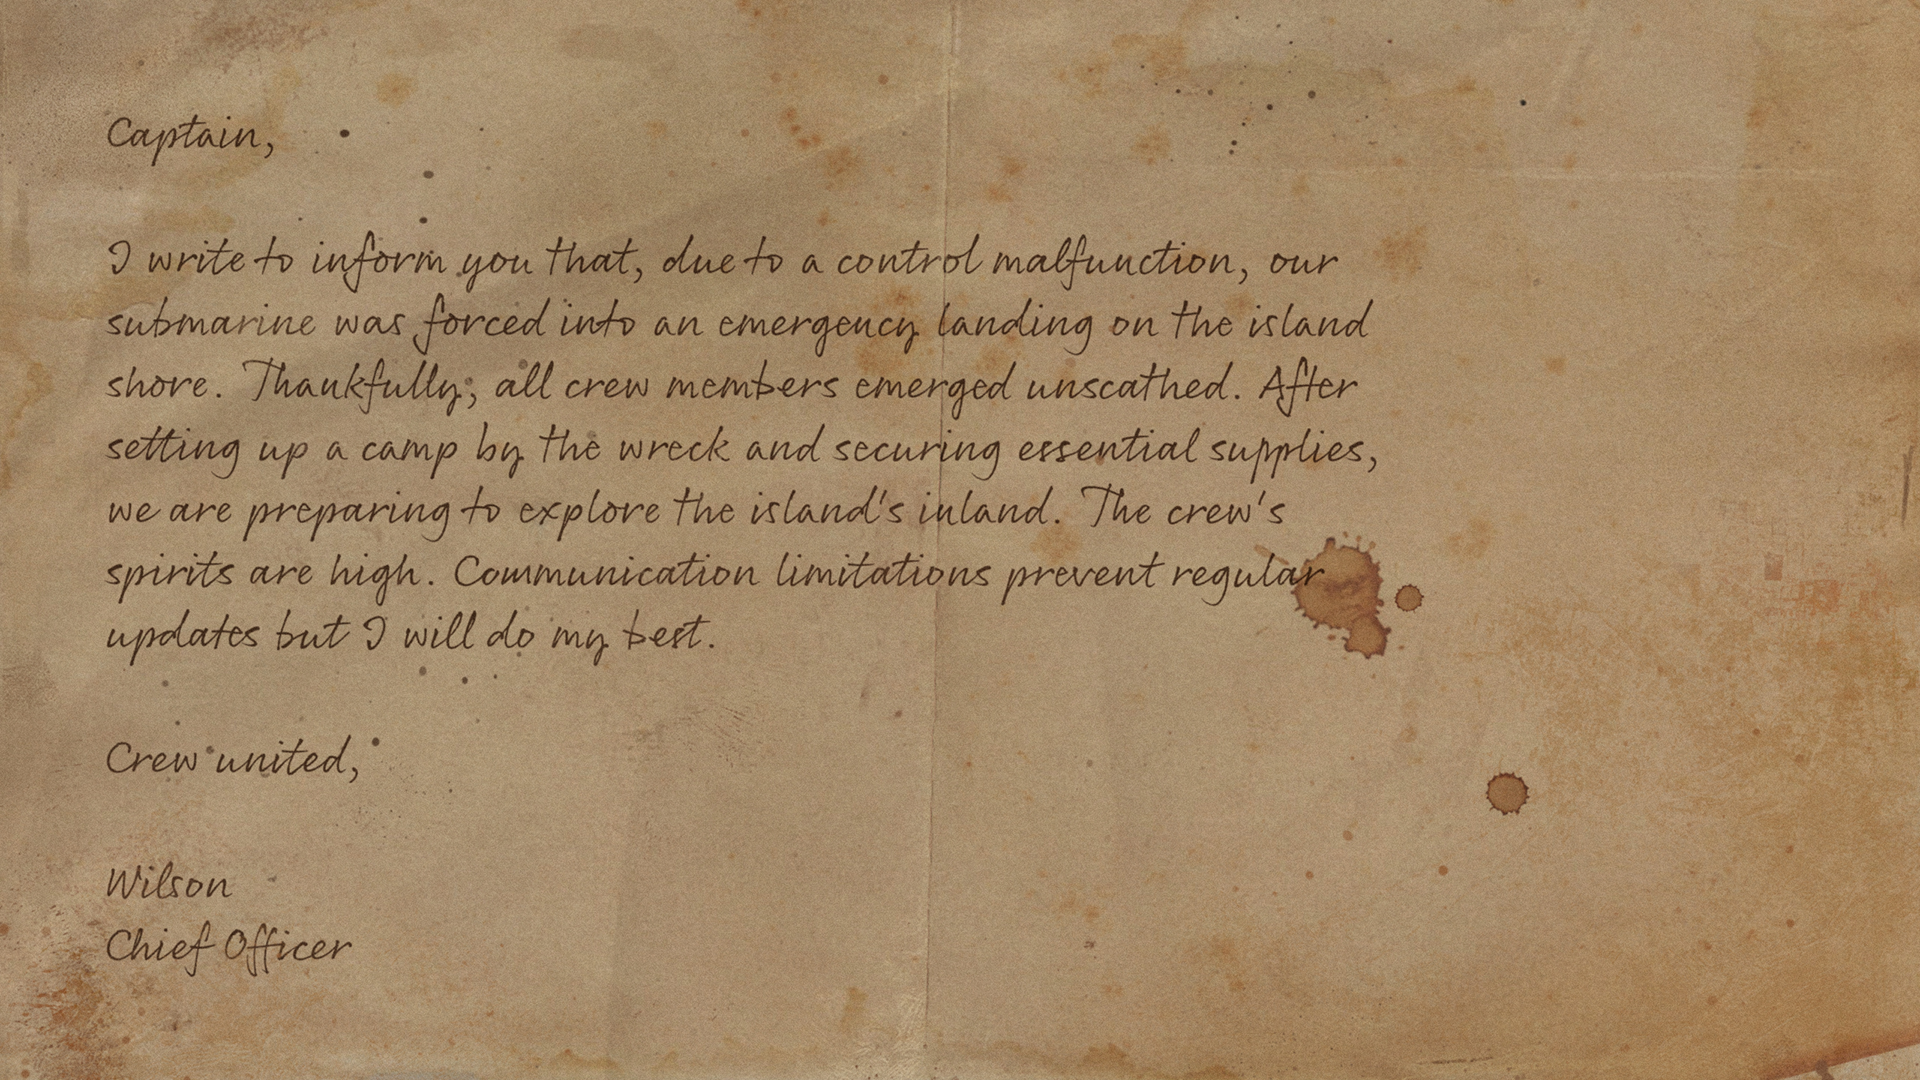 Captain,
I write to inform you that, due to a control malfunction, our
submarine was forced into an emergency landing on the island
shore. Thankfully, all crew members emerged unscathed. After
setting up a camp by the wreck and securing essential supplies,
we are preparing to explore the island's inland. The crew's
spirits are high. Communication limitations prevent regular
updates but I will do my best.
Crew united,
Wilson
Chief Officer